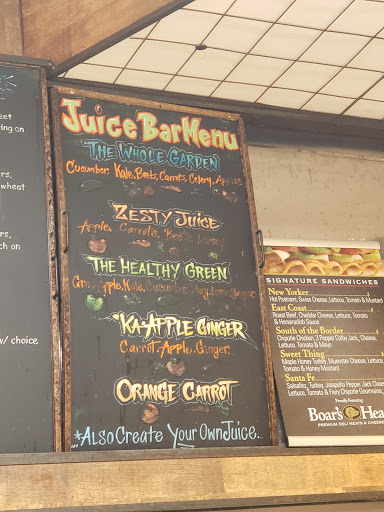 eet
ing on
wheat
ch on
w/ choice
Juice Bar Menu
THE WHOLE GARDEN
Cucumber, Kale, Beets, Carrots, Celery, Apples
ZESTY JUICE
Apple, Carrots, Beets, Lemon
THE HEALTHY GREEN
Apple, Kale, Cucumber, Ginger
"KA-APPLE GINGER
Carrot, Apple, Ginger
ORANGE CARROT
*Also Create Your Own Juice..
SIGNATURE SANDWICHES
New Yorker
Hot Pastrami, Swiss Cheese, Lettuce, Tomato & Mustard
East Coast
Roast Beef, Cheddar Cheese, Lettuce, Tomato
& Horseradish Sauce
South of the Border
Chipotle Chicken, 3 Pepper Colby Jack, Cheese,
Lettuce, Tomato & Mayo
Sweet Thing
Maple Honey Turkey, Muenster Cheese, Lettuce,
Tomato & Honey Mustard
Santa Fe
Salsalito, Turkey, Jalapeño Pepper Jack Cheese
Lettuce, Tomato & Fiery Chipotle Gourmaise
Proudly Featuring
Boar's Hea
PREMIUM DELI MEATS & CHEESE